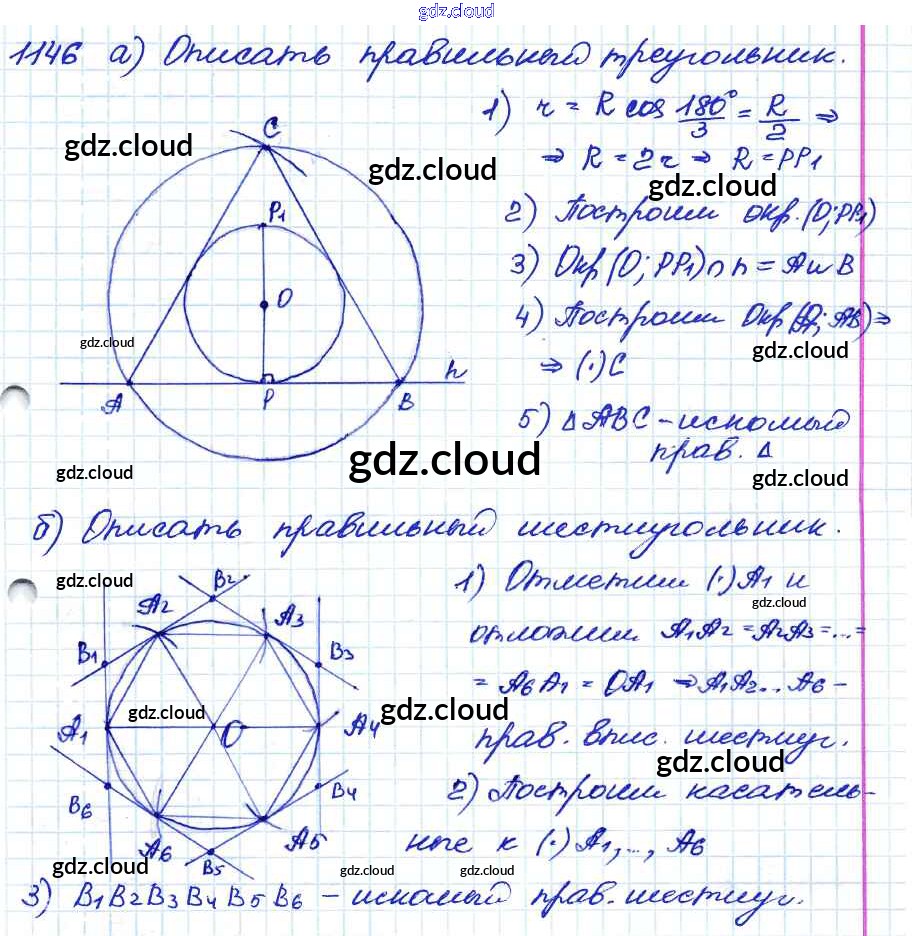 gdz.cloud
1146 а) Описать правильный треугольник.
1) r = R cos 180°/3 = R/2 ⇒
⇒ R = 2r ⇒ R = PP1
2) Построим окр.(O;PP1)
3) Окр(O; PP1)∩h = A и B
4) Построим Окр(A; AB)⇒
⇒ (·)C
5) Δ ABC - искомый
прав. Δ
C
P1
O
h
A
P
B
gdz.cloud
gdz.cloud
gdz.cloud
gdz.cloud
gdz.cloud
gdz.cloud
gdz.cloud
gdz.cloud
б) Описать правильный шестиугольник.
1) Отметим (·)A1 и
отложим A1A2 = A2A3 = ... =
= A6A1 = OA1 ⇒ A1A2...A6 -
прав. впис. шестиуг.
2) Построим касатель-
ные к (·) A1,..., A6
3) B1B2B3B4B5B6 - искомый прав. шестиуг.
B2
A2
A3
B1
B3
A1
O
A4
B6
B4
A6
A5
B5
gdz.cloud
gdz.cloud
gdz.cloud
gdz.cloud
gdz.cloud
gdz.cloud
gdz.cloud
gdz.cloud